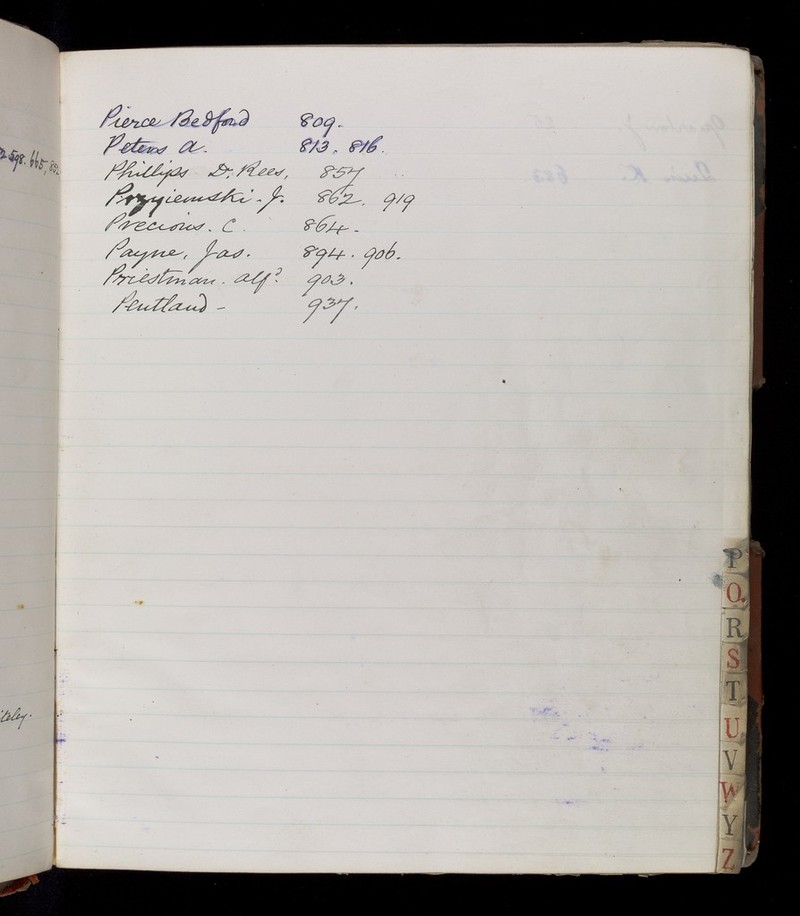 Pierce Bedford 809.
Peters A. 813. 816.
Phillips Dr. Rees. 857
Przyiemski. J. 862. 919
Precious. C. 864.
Payne, Jas. 894. 906.
Priestman. Alfd. 903.
Pentland - 937.
598. 665,
P
Q
R
S
T
U
V
W
Y
Z